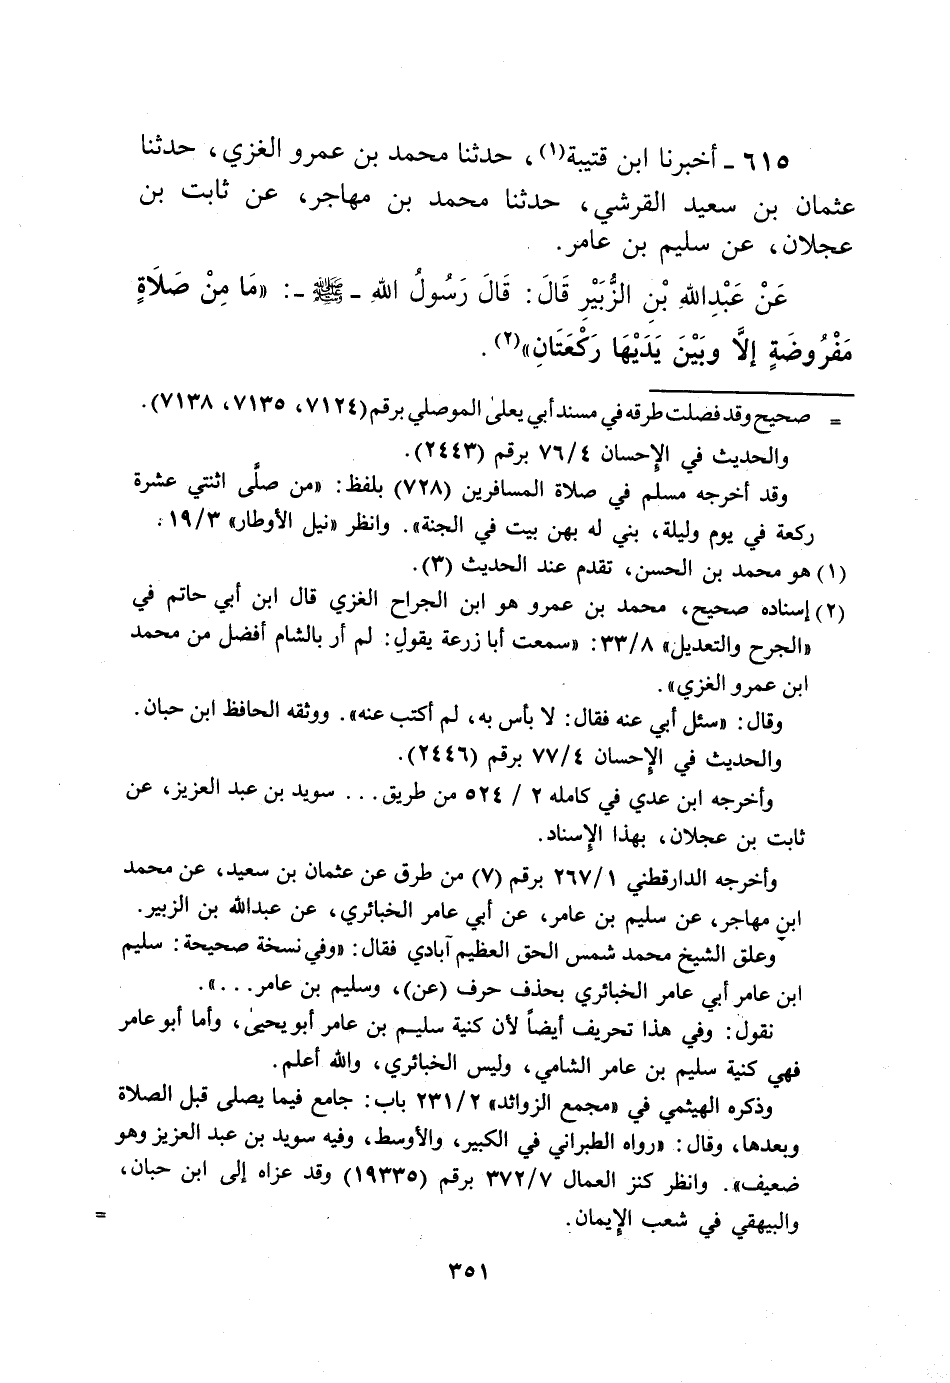 ٦١٥ ـ أخبرنا ابن قتيبة(١)، حدثنا محمد بن عمرو الغزي، حدثنا
عثمان بن سعيد القرشي، حدثنا محمد بن مهاجر، عن ثابت بن
عجلان، عن سليم بن عامر.
عَنْ عَبْدِاللهِ بْنِ الزُّبَيْرِ قَالَ: قَالَ رَسُولُ اللهِ ـ ﷺ ـ: «مَا مِنْ صَلَاةٍ
مَفْرُوضَةٍ إلَّا وبَيْنَ يَدَيْهَا رَكْعَتَانِ»(٢).
= صحيح وقد فصلت طرقه في مسند أبي يعلىٰ الموصلي برقم (٧١٢٤، ٧١٣٥، ٧١٣٨).
والحديث في الإحسان ٧٦/٤ برقم (٢٤٤٣).
وقد أخرجه مسلم في صلاة المسافرين (٧٢٨) بلفظ: «من صلَّى اثنتي عشرة
ركعة في يوم وليلة، بني له بهن بيت في الجنة». وانظر «نيل الأوطار» ١٩/٣.
(١) هو محمد بن الحسن، تقدم عند الحديث (٣).
(٢) إسناده صحيح، محمد بن عمرو هو ابن الجراح الغزي قال ابن أبي حاتم في
«الجرح والتعديل» ٣٣/٨: «سمعت أبا زرعة يقول: لم أر بالشام أفضل من محمد
ابن عمرو الغزي».
وقال: «سئل أبي عنه فقال: لا بأس به، لم أكتب عنه». ووثقه الحافظ ابن حبان.
والحديث في الإحسان ٧٧/٤ برقم (٢٤٤٦).
وأخرجه ابن عدي في كامله ٢ / ٥٢٤ من طريق... سويد بن عبد العزيز، عن
ثابت بن عجلان، بهذا الإسناد.
وأخرجه الدارقطني ٢٦٧/١ برقم (٧) من طرق عن عثمان بن سعيد، عن محمد
ابن مهاجر، عن سليم بن عامر، عن أبي عامر الخبائري، عن عبدالله بن الزبير.
وعلق الشيخ محمد شمس الحق العظيم آبادي فقال: «وفي نسخة صحيحة: سليم
ابن عامر أبي عامر الخبائري بحذف حرف (عن)، وسليم بن عامر...».
نقول: وفي هذا تحريف أيضاً لأن كنية سليم بن عامر أبو يحيىٰ، وأما أبو عامر
فهي كنية سليم بن عامر الشامي، وليس الخبائري، والله أعلم.
وذكره الهيثمي في «مجمع الزوائد» ٢٣١/٢ باب: جامع فيما يصلى قبل الصلاة
وبعدها، وقال: «رواه الطبراني في الكبير، والأوسط، وفيه سويد بن عبد العزيز وهو
ضعيف». وانظر كنز العمال ٣٧٢/٧ برقم (١٩٣٣٥) وقد عزاه إلى ابن حبان،
والبيهقي في شعب الإيمان. =
٣٥١